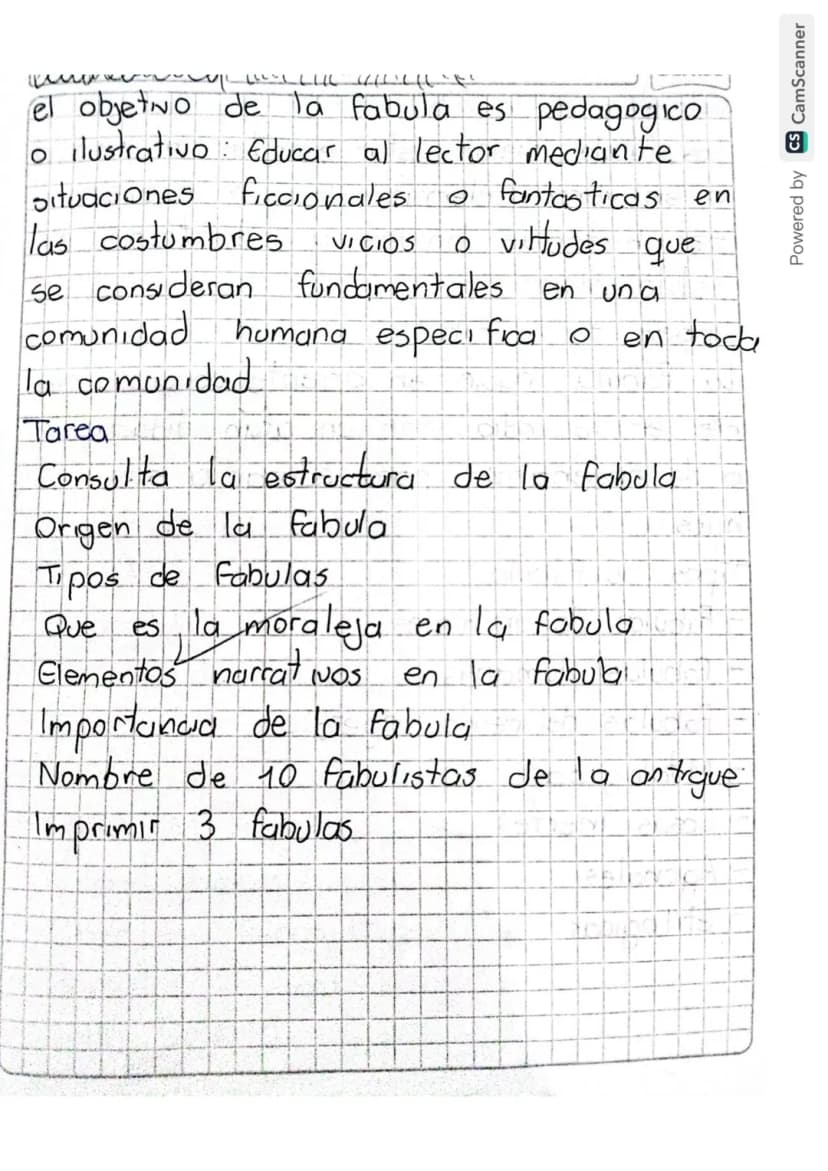 el objetivo de la fabula es pedagogico
o ilustrativo : Educar al lector mediante
situaciones ficcionales o fantasticas en
las costumbres vicios o virtudes que
se consideran fundamentales en una
comunidad humana especifica o en toda
la comunidad
Tarea
Consulta la estructura de la fabula
Origen de la fabula
Tipos de fabulas
Que es la moraleja en la fabula
Elementos narrativos en la fabula
Importancia de la fabula
Nombre de 10 fabulistas de la antigue
Imprimir 3 fabulas
Powered by CS CamScanner